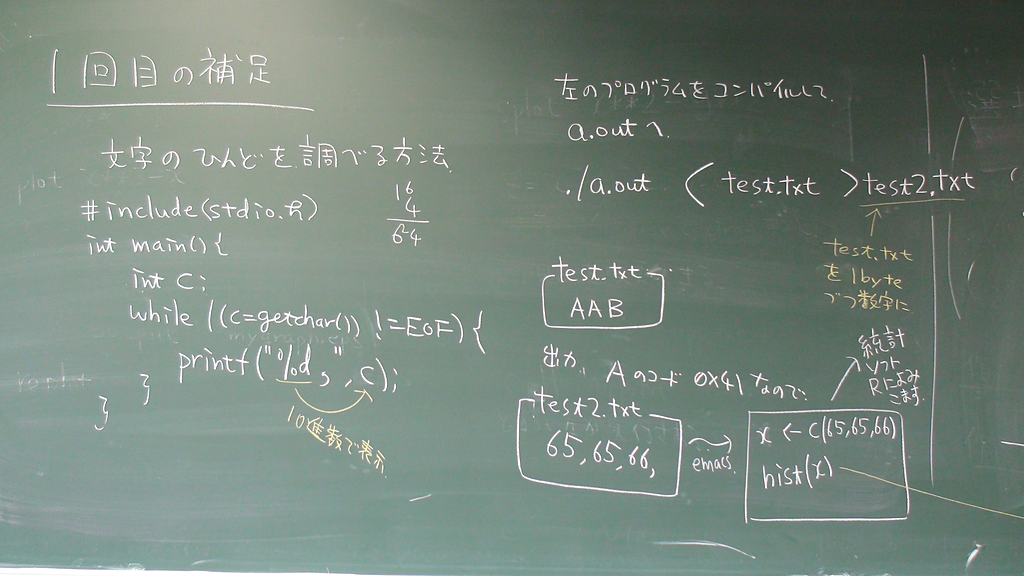 1回目の補足
文字のひんどを調べる方法
#include(stdio.h)
int main(){
int c;
while ((c=getchar()) !=EOF){
printf("%d, ",c);
}
}
10進数で表示
16
4
64
左のプログラムをコンパイルして
a.outへ
./a.out < test.txt >test2.txt
test.txt
を1byte
づつ数字に
test.txt
AAB
出力、Aのコード0x41なので
test2.txt
65,65,66,
emacs
統計
ソフト
Rによみ
こます
x ← c(65,65,66)
hist(x)